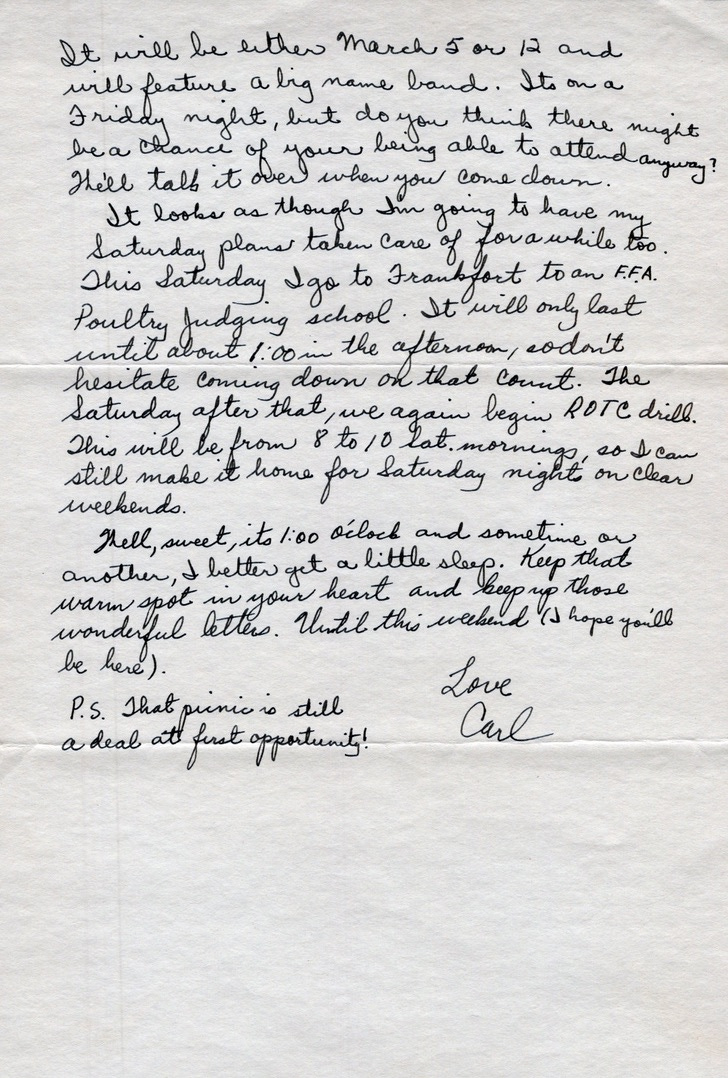 It will be either March 5 or 12 and
will feature a big name band. Its on a
Friday night, but do you think there might
be a chance of your being able to attend anyway?
We'll talk it over when you come down.
It looks as though I'm going to have my
Saturday plans taken care of for a while too.
This Saturday I go to Frankfort to an F.F.A.
Poultry Judging school. It will only last
until about 1:00 in the afternoon, so don't
hesitate coming down on that count. The
Saturday after that, we again begin ROTC drill.
This will be from 8 to 10 Sat. mornings, so I can
still make it home for Saturday night on clear
weekends.
Well, sweet, its 1:00 o'clock and sometime or
another, I better get a little sleep. Keep that
warm spot in your heart and keep up those
wonderful letters. Until this weekend (I hope you'll
be here).
Love
Carl
P.S. That picnic is still
a deal at first opportunity!